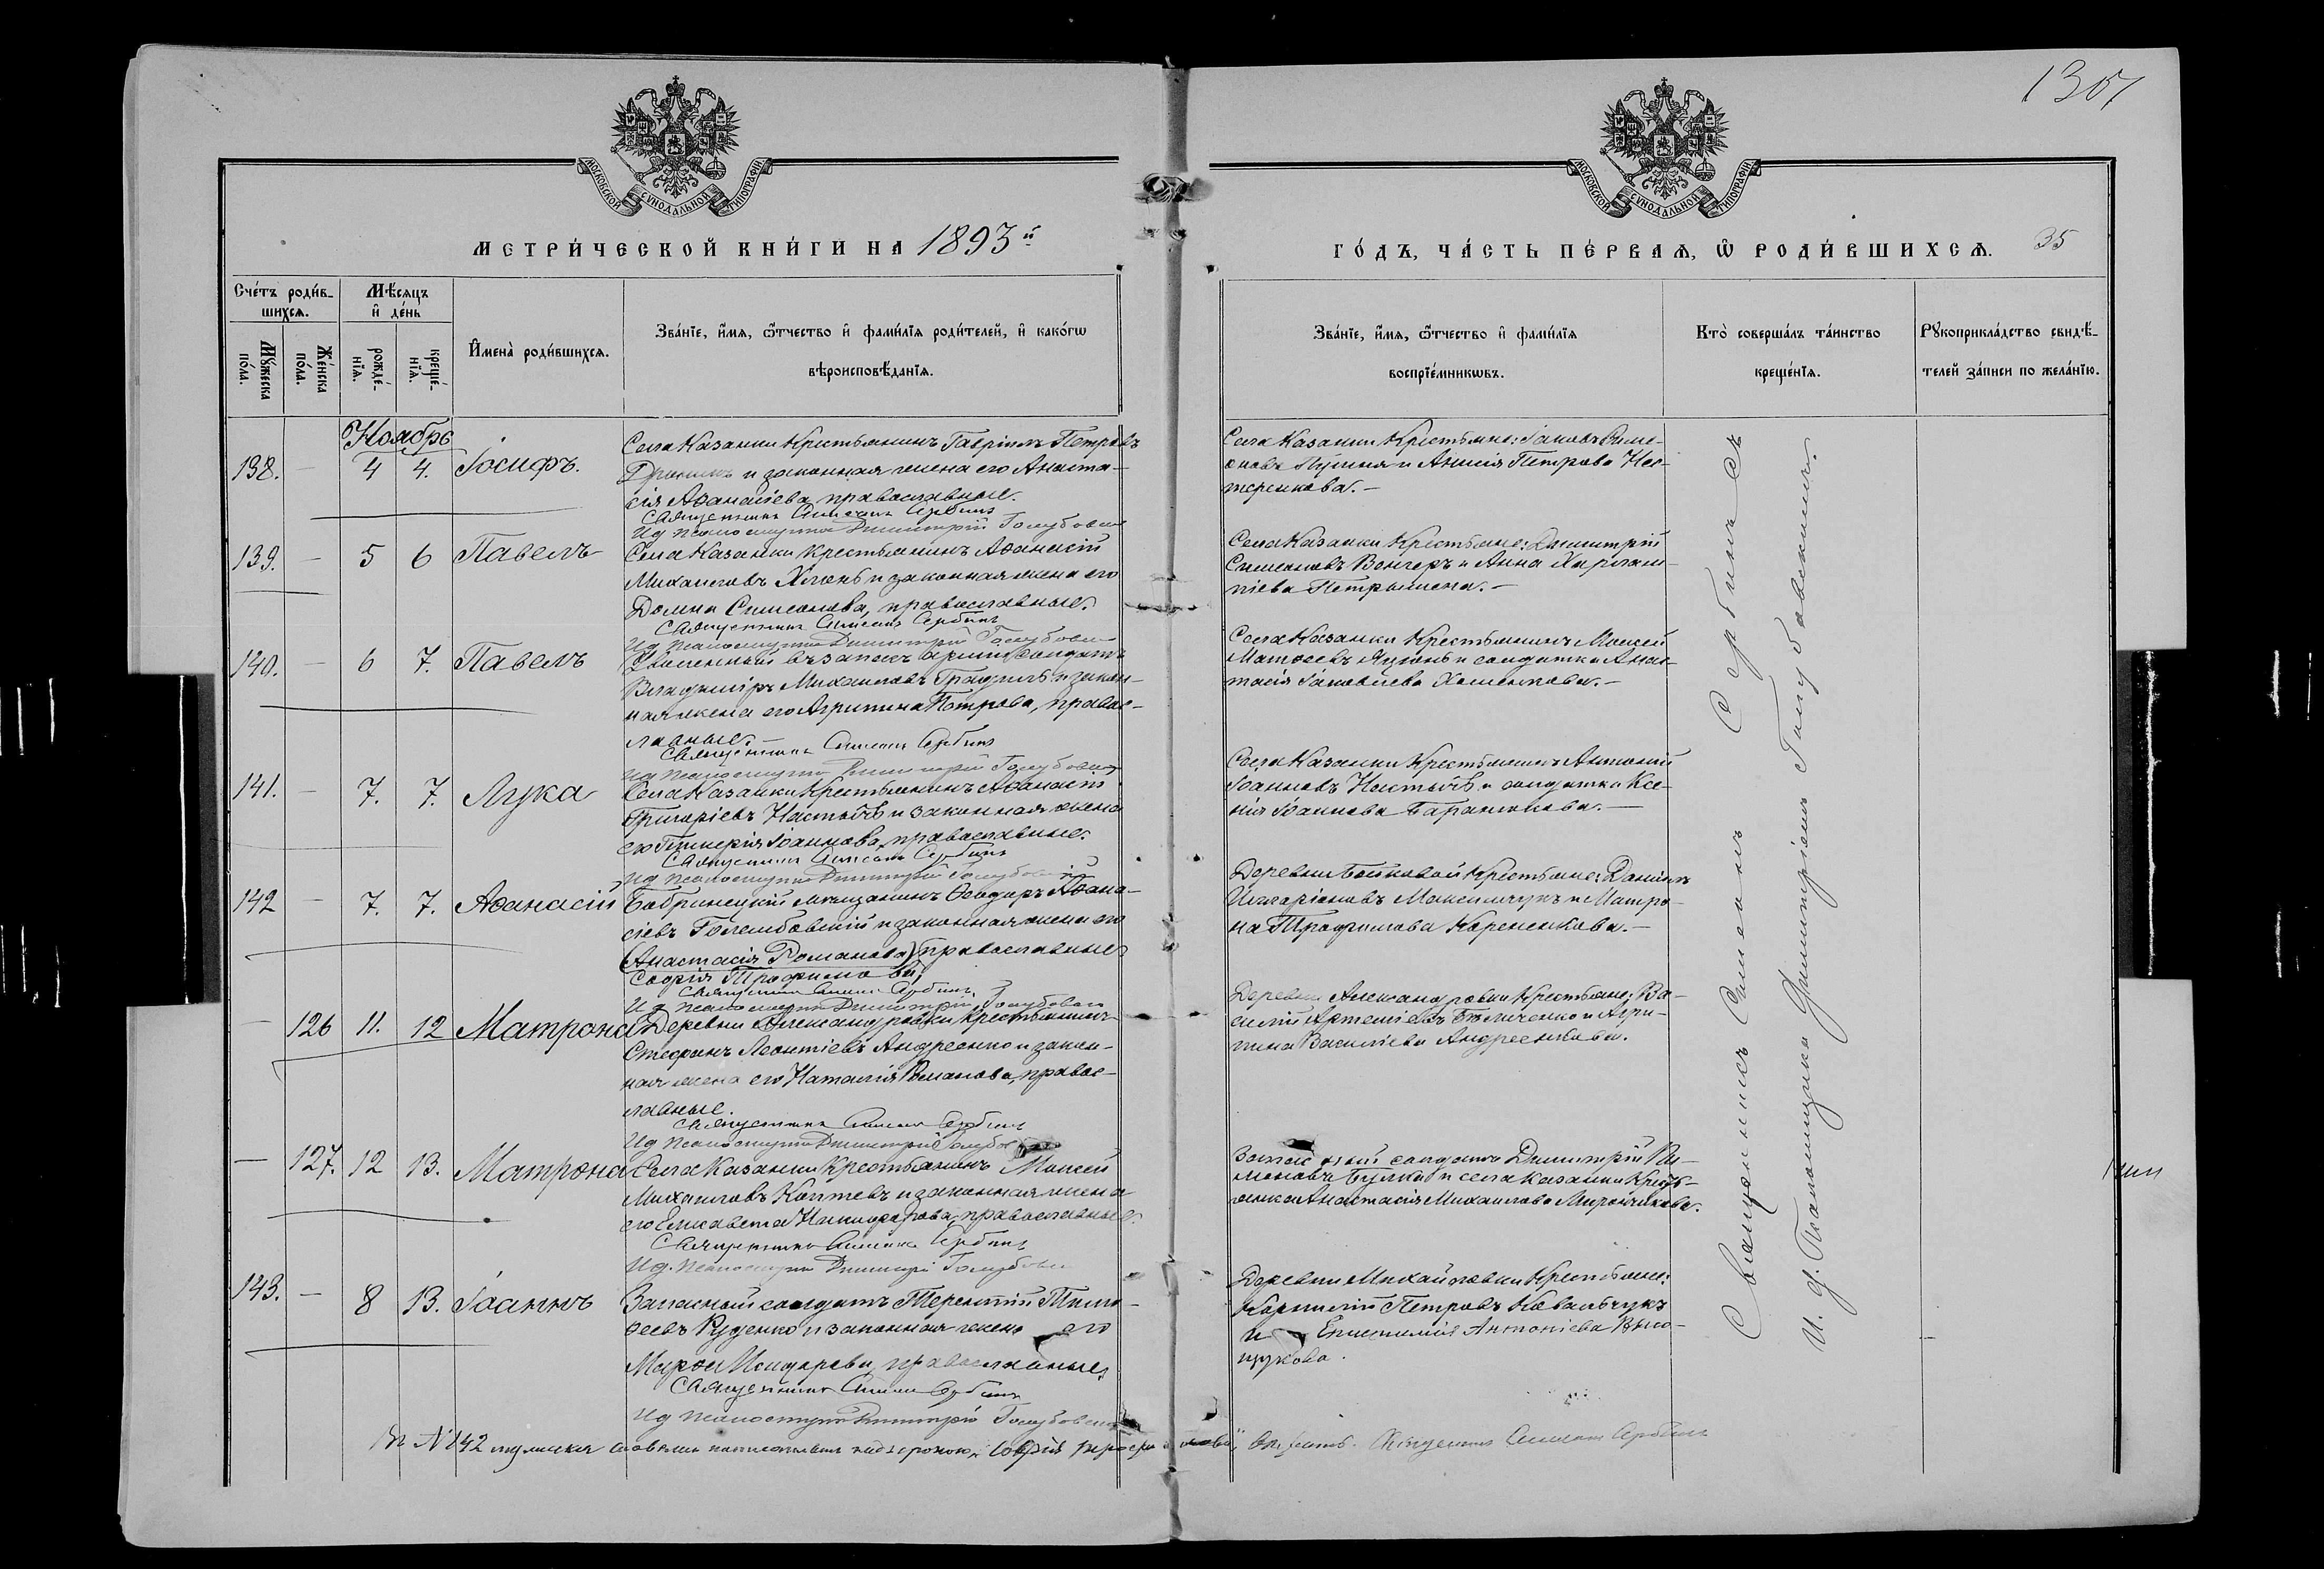 1301
МОСКОВСКОЙ СУНОДАЛЬНОЙ ТИПОГРАФІИ
МОСКОВСКОЙ СУНОДАЛЬНОЙ ТИПОГРАФІИ
МЕТРИ́ЧЕСКОЙ КНИ́ГИ НА 1893й
ГО́ДЪ, ЧА́СТЬ ПЕ́РВАЯ, Ѡ РОДИ́ВШИХСЯ. 35
Сче́тъ роди́в-
шихся.
Мѣ́сяцъ
и де́нь
Мꙋ́жеска
по́ла.
Же́нска
по́ла.
рожде́-
нїя.
креще́-
нїя.
Имена̀ роди́вшихся.
Зва́нїе, и́мя, ѻ́тчество и фами́лїя роди́телей, и како́гѡ
вѣроисповѣ́данїя.
Зва́нїе, и́мя, ѻ́тчество и фами́лїя
воспрїе́мникѡвъ.
Кто̀ соверша́лъ та́инство
креще́нїя.
Рꙋкоприкла́дство свидѣ́-
телей за́писи по жела́нїю.
Ноябрь
138. — 4 4. Іосифъ.
Села Казанки Крестьянинъ Гавріилъ Петровъ
и законная жена его Анаста-
сія Аѳанасіева, православные.
Священникъ Симеонъ Сербинъ
Ид Псаломщика Димитрій Голубовскій
Села Казанки Крестьяне: Іаковъ Симе-
оновъ и Анисія Петрова Нес-
теренкова. —
139. — 5 6 Павелъ
Села Казанки крестьянинъ Аѳанасій
Михаиловъ и законная жена его
Домна Симеонова, православные.
Священникъ Симеонъ Сербинъ
Ид Псаломщика Димитрій Голубовскій
Села Казанки Крестьяне: Димитрій
Симеоновъ Венгеръ и Анна Харлам-
піева —
140. — 6 7. Павелъ
Уволенный въ запасъ арміи солдатъ
Владиміръ Михаиловъ и закон-
ная жена его Агрипина Петрова, правос-
лавные. —
Священникъ Симеонъ Сербинъ
Ид Псаломщика Димитрій Голубовскій
Села Казанки Крестьянинъ Моисей
Матѳеевъ и солдатка Анас-
тасія Іаковлева Хоменкова. —
141. — 7. 7. Лука
Села Казанки Крестьянинъ Аѳанасій
Григоріевъ и законная жена
его Гликерія Іоаннова, православные.
Священникъ Симеонъ Сербинъ
Ид Псаломщика Димитрій Голубовскій
Села Казанки Крестьянинъ Антоній
Іоанновъ и солдатка Ксе-
нія Іоаннова —
142 — 7. 7. Аѳанасій
Бобринецкій мѣщанинъ Ѳеодоръ Аѳана-
сіевъ Голембовскій и законная жена его
(Анастасія Романова) православные
Софія Трофимова,
Священникъ Симеонъ Сербинъ
Ид Псаломщика Димитрій Голубовскій
Деревни Крестьяне: Даніилъ
Максимчукъ и Матро-
на Трофимова Корененкова. —
— 126 11. 12 Матрона
Деревни Александровки крестьянинъ
Стефанъ Леонтіевъ Андреенко и закон-
ная жена его Наталія Романова, правос-
лавные.
Священникъ Симеонъ Сербинъ
Ид Псаломщика Димитрій Голубовскій
Деревни Александровки Крестьяне: Ва-
силій Артеміевъ и Агри-
пина Василіева Андреенкова.
— 127. 12 13. Матрона
Села Казанки Крестьянинъ Моисей
Михаиловъ Коптевъ и законная жена
его Елисавета Никифорова, православные.
Священникъ Симеонъ Сербинъ
Ид. Псаломщика Димитрій Голубовскій
Запасный солдатъ Димитрій
и села Казанки Кресть-
янка Анастасія Михаилова
143. — 8 13. Іоаннъ
Запасный солдатъ Терентій Тимо-
ѳеевъ Руденко и законная жена его
Марѳа Исидорова, православные,
Священникъ Симеонъ Сербинъ
Ид Псаломщика Димитрій Голубовскій
Деревни Михайловки Крестьяне:
Корнилій Петровъ Ковальчукъ
и Епистимія Антоніева
Священникъ Симеонъ Сербинъ съ
И. д. Псаломщика Димитріемъ Голубовскимъ.
№ 142 написаннымъ надъ строкою "Софія Трофимова" вѣрить. Священникъ Симеонъ Сербинъ